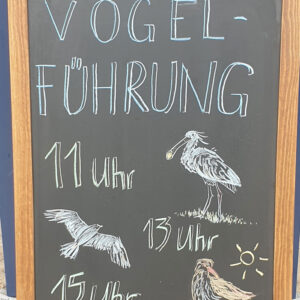 VOGEL-
FÜHRUNG
11 Uhr
13 Uhr
15 Uhr